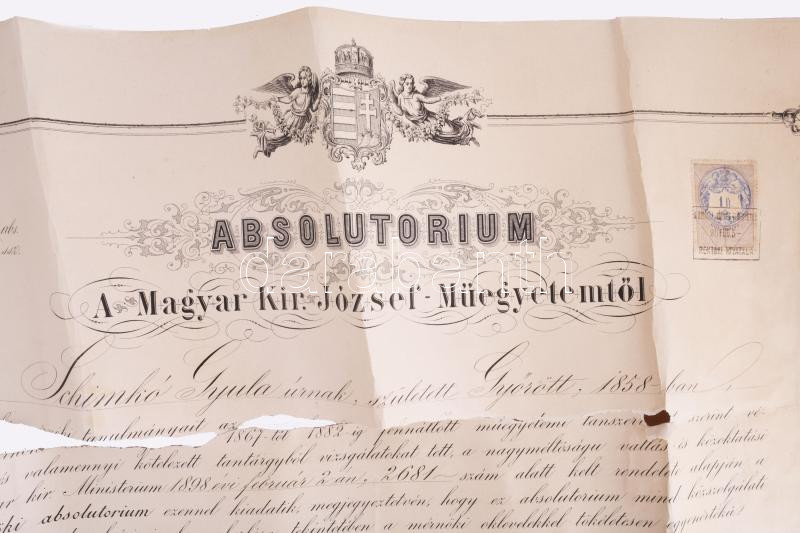 ABSOLUTORIUM
A Magyar Kir. József-Müegyetemtől
Schimkó Gyula úrnak, született Győrött, 1858-ban
tanulmányait az 1867-től 1882-ig fennállott műegyetemi tanszerv szerint vé-
valamennyi kötelezett tantárgyból vizsgálatokat tett, a nagyméltóságu vallás és közoktatási
kir. Ministerium 1898 évi február 2 án, 2681 szám alatt kelt rendelete alapján a
absolutorium ezennel kiadatik, megjegyeztetvén, hogy ez absolutorium mind közszolgálati
tekintetében a mérnöki oklevelekkel tökéletesen egyenértékű